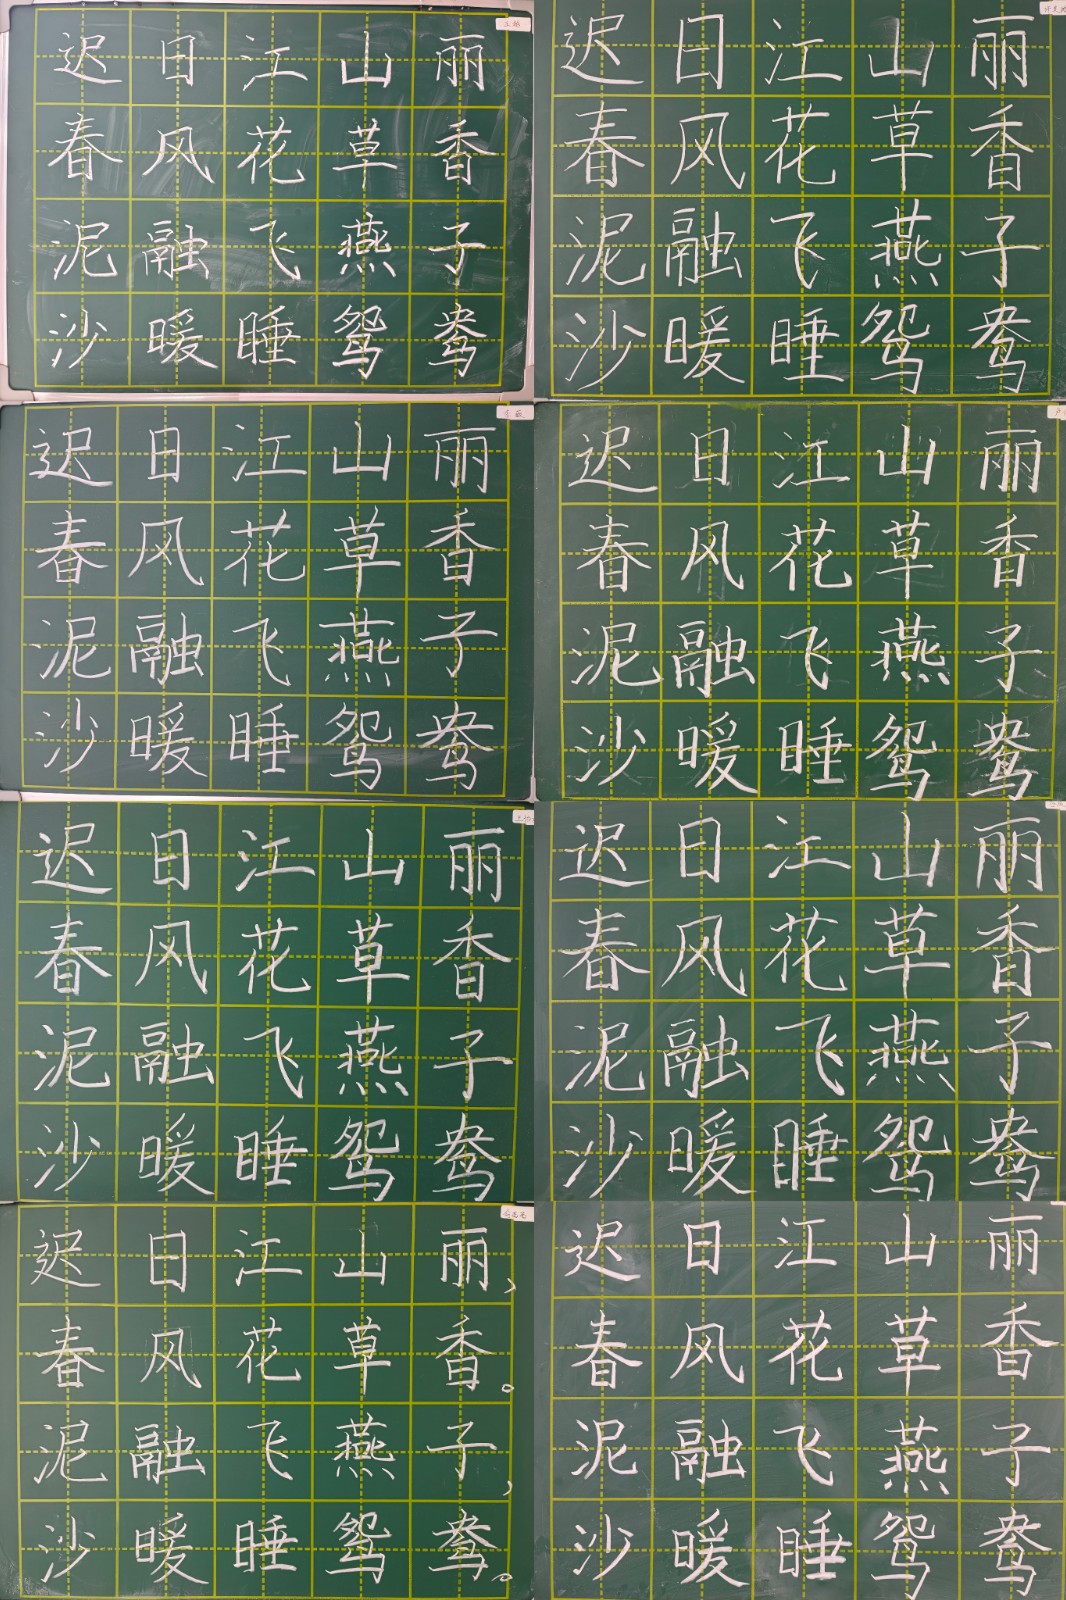 迟日江山丽
春风花草香
泥融飞燕子
沙暖睡鸳鸯
迟日江山丽
春风花草香
泥融飞燕子
沙暖睡鸳鸯
迟日江山丽
春风花草香
泥融飞燕子
沙暖睡鸳鸯
迟日江山丽
春风花草香
泥融飞燕子
沙暖睡鸳鸯
迟日江山丽
春风花草香
泥融飞燕子
沙暖睡鸳鸯
迟日江山丽
春风花草香
泥融飞燕子
沙暖睡鸳鸯
迟日江山丽，
春风花草香。
泥融飞燕子，
沙暖睡鸳鸯。
迟日江山丽
春风花草香
泥融飞燕子
沙暖睡鸳鸯